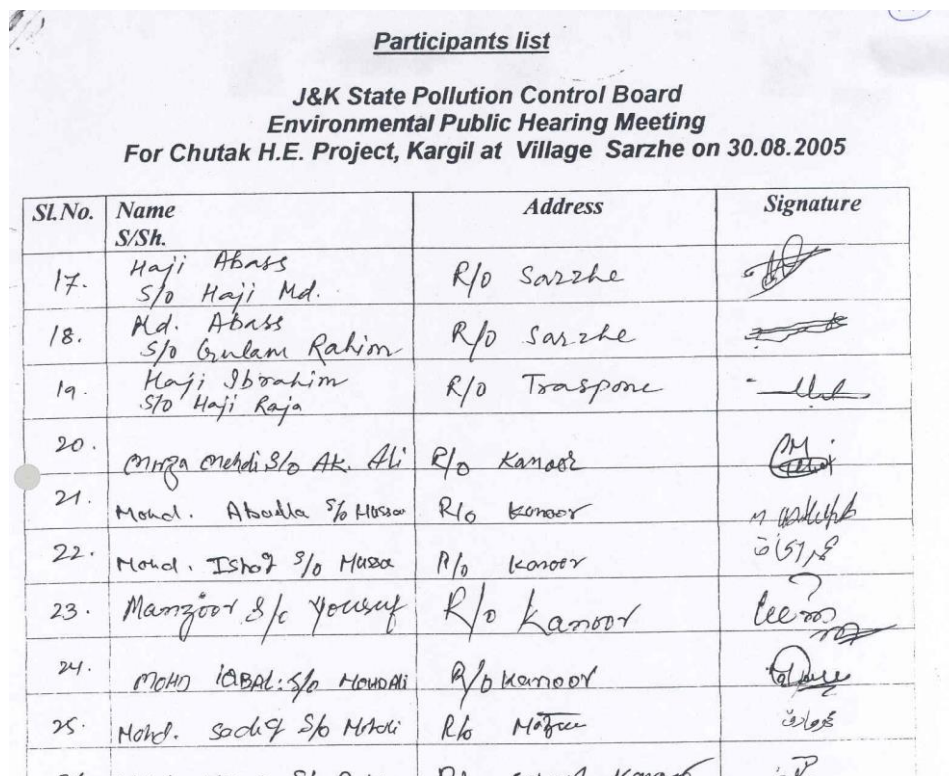 Participants list
J&K State Pollution Control Board
Environmental Public Hearing Meeting
For Chutak H.E. Project, Kargil at Village Sarzhe on 30.08.2005
Sl.No. Name Address Signature
S/Sh.
17. Haji Abass R/o Sarzhe
S/o Haji Md.
18. Md. Abass R/o Sarzhe
S/o Gulam Rahim
19. Haji Ibrahim R/o Traspone
S/o Haji Raja
20. Mirza Mehdi S/o AK. Ali R/o Kanoor
21. Mohd. Abadla S/o Mussa R/o Kanoor
22. Mohd. Ishaq S/o Mussa R/o Kanoor
23. Manzoor S/o Yousuf R/o Kanoor
24. MOHD IQBAL: S/o MOHD Ali R/o Kanoor
25. Mohd. Sadiq S/o Mehdi R/o